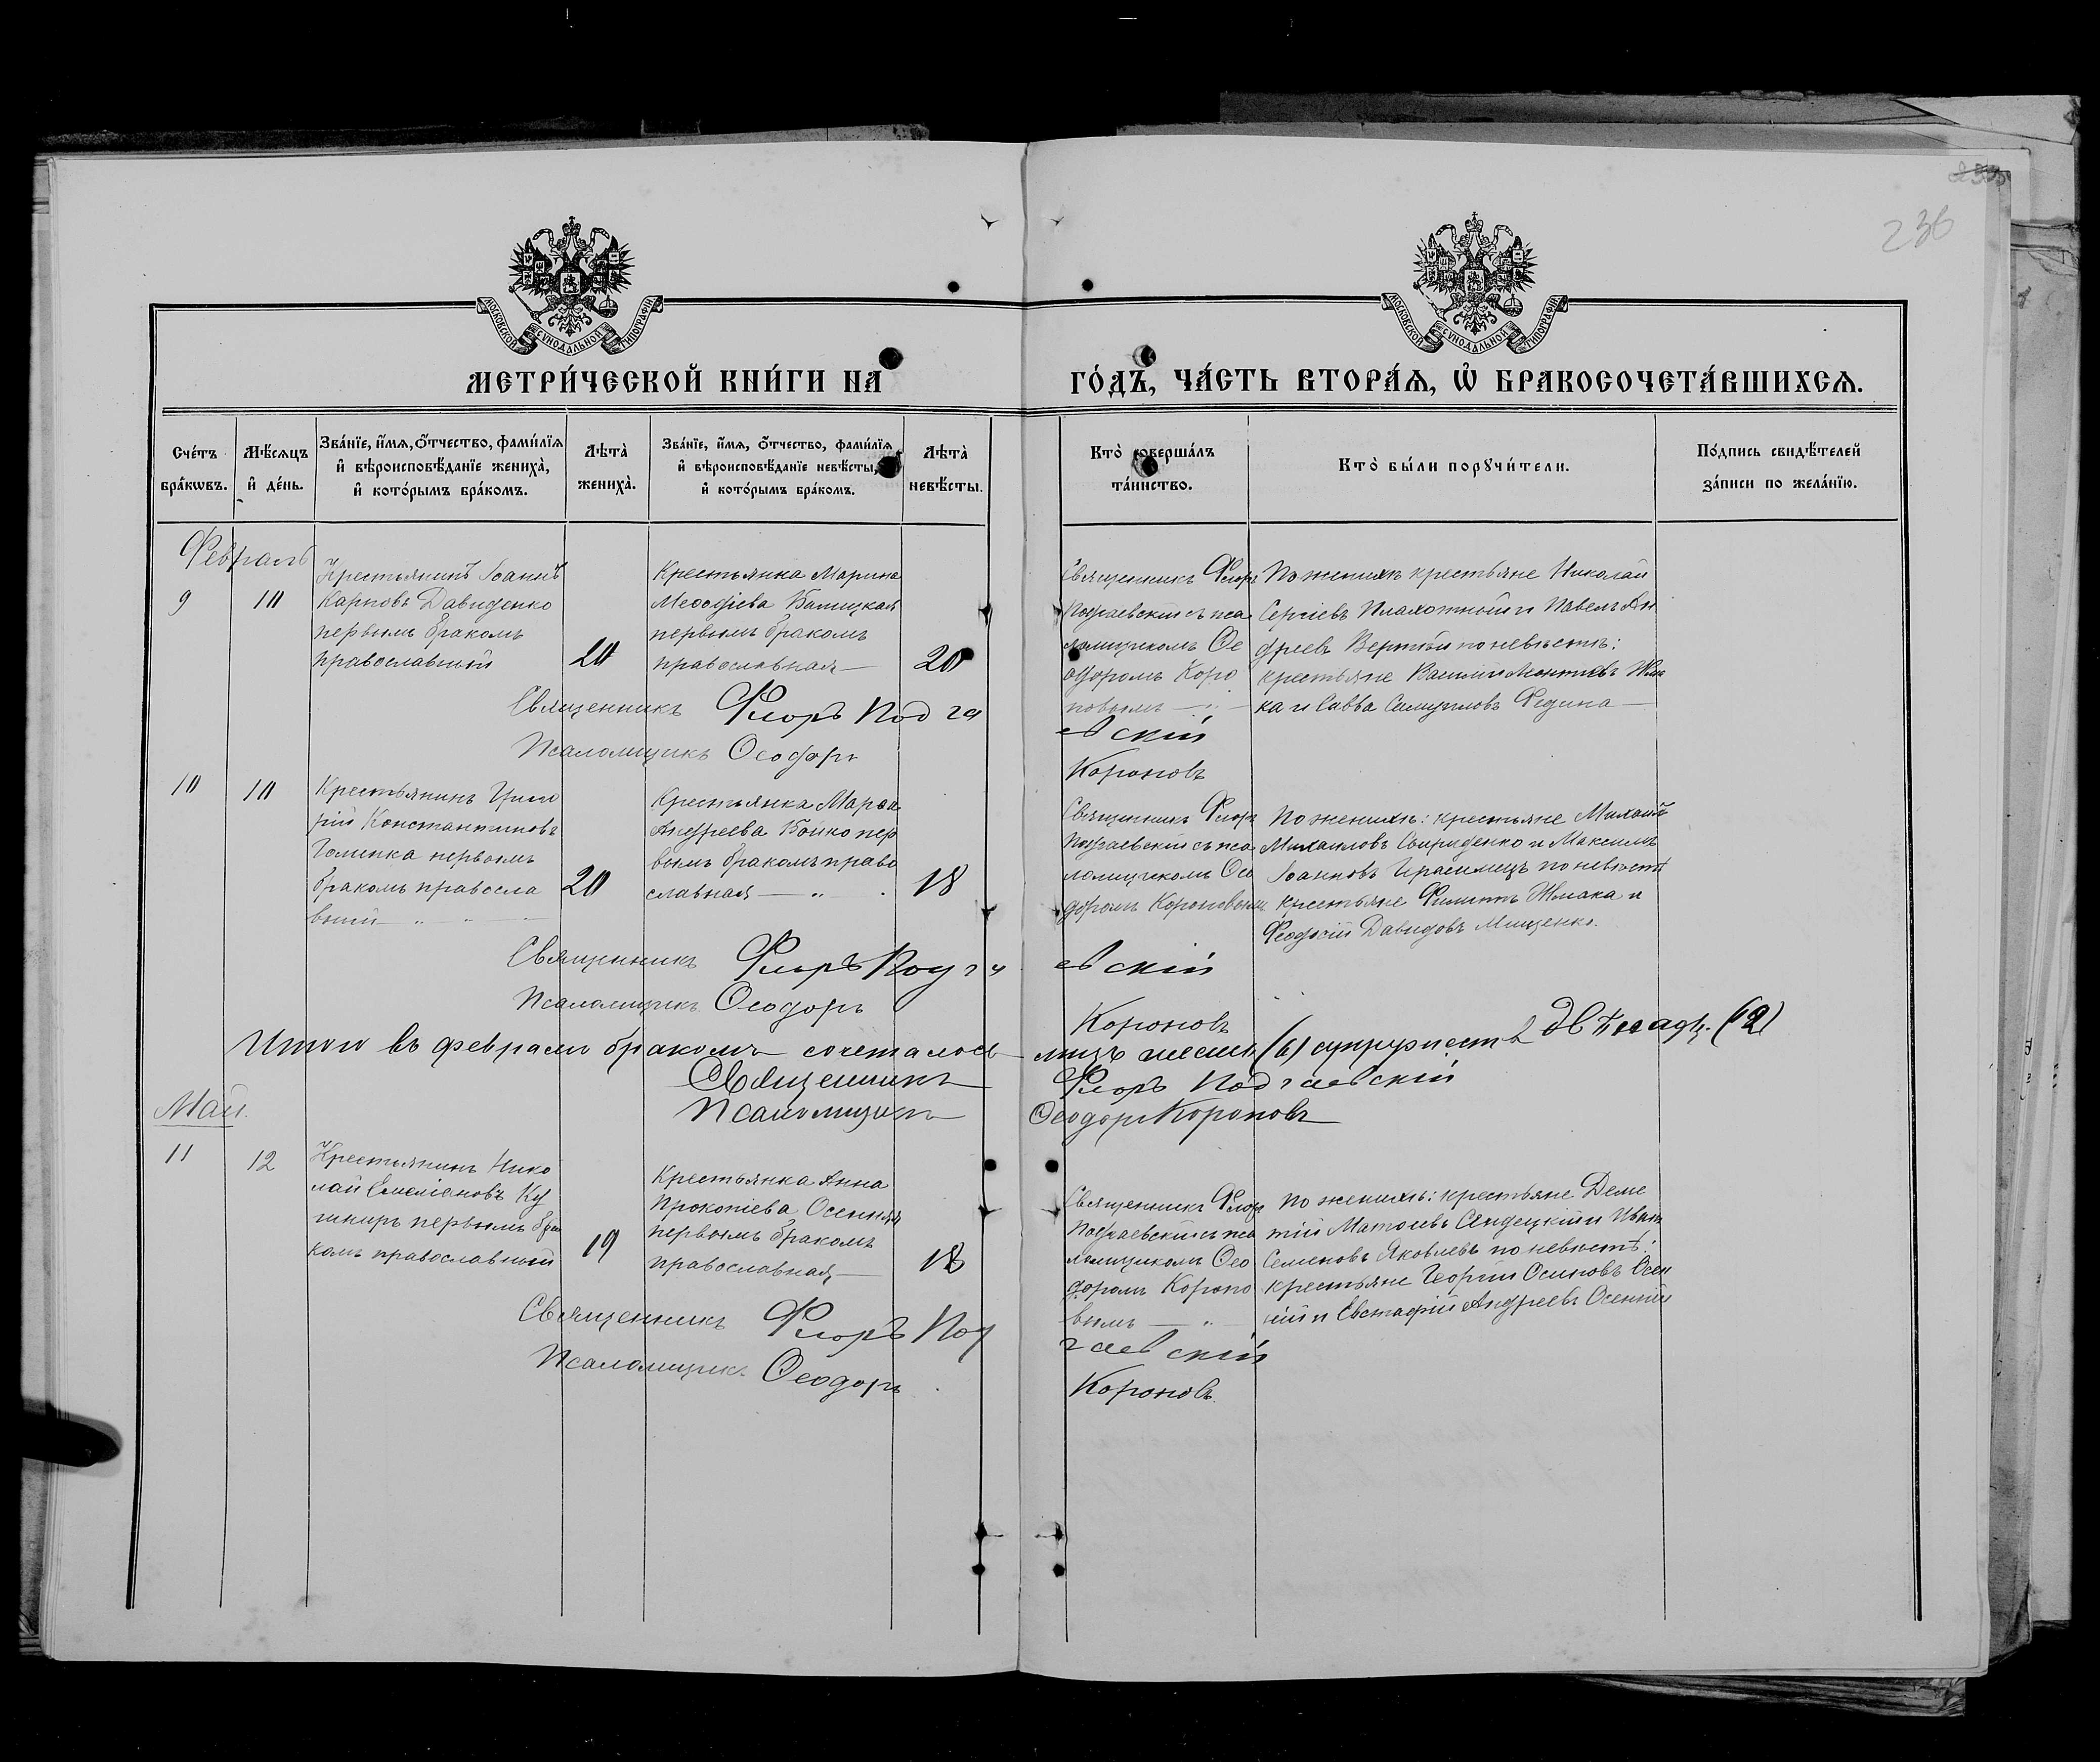 236
МОСКОВСКОЙ СѴНОДАЛЬНОЙ ТИПОГРАФІИ
МОСКОВСКОЙ СѴНОДАЛЬНОЙ ТИПОГРАФІИ
МЕТРИ́ЧЕСКОЙ КНИ́ГИ НА
ГО́ДЪ, ЧА́СТЬ ВТОРА́Ѧ, Ѡ҆ БРАКОСОЧЕТА́ВШИХСѦ.
Сче́тъ бра́кѡвъ.
Мѣ́сяцъ и҆ де́нь.
Зва́нїе, и҆́мѧ, ѻ҆́тчество, фами́лїѧ
и҆ вѣроисповѣ́данїе жениха̀,
и҆ кото́рымъ бра́комъ.
Лѣта̀ жениха̀.
Зва́нїе, и҆́мѧ, ѻ҆́тчество, фами́лїѧ
и҆ вѣроисповѣ́данїе невѣ́сты,
и҆ кото́рымъ бра́комъ.
Лѣта̀ невѣ́сты.
Кто̀ соверша́лъ
та́инство.
Кто̀ бы́ли порꙋчи́тели.
По́дпись свидѣ́телей
за́писи по жела́нїю.
Февраль
9
10
Крестьянинъ Іоаннъ
Карповъ Давиденко
первымъ бракомъ
православный
20
Крестьянка Марина
Меѳодіева
первымъ бракомъ
православная
20
Священникъ Флоръ
Подгаевскій съ пса
ломщикомъ Ѳе
одоромъ Коро
новымъ
По женихѣ крестьяне Николай
Сергіевъ Плахотный и Павелъ Ан
древъ Вертій по невѣстѣ:
крестьяне Василій Леонтіевъ Жма
ка и Савва Самуиловъ Федина
Священникъ Флоръ Подга евскій
Псаломщикъ Ѳеодоръ Короновъ
10
10
Крестьянинъ Григо
рій Константиновъ
первымъ
бракомъ правосла
вный
20
Крестьянка Марѳа
Андреева Бойко пер
вымъ бракомъ право
славная
18
Священникъ Флоръ
Подгаевскій съ пса
ломщикомъ Ѳео
доромъ Короновымъ
По женихѣ: крестьяне Михаилъ
Михаиловъ Свириденко и Максимъ
Іоанновъ Герасимецъ по невѣстѣ
крестьяне Филиппъ Жмака и
Феодосій Давидовъ Мищенко.
Священникъ Флоръ Подга евскій
Псаломщикъ Ѳеодоръ Короновъ
Итого въ февралѣ бракомъ сочеталось лицъ шесть (6) супружествъ двѣнадц. (12)
Священникъ Флоръ Подгаевскій
Псаломщикъ Ѳеодоръ Короновъ
Май
11
12
Крестьянинъ Нико
лай Емеліановъ Ку
шниръ первымъ бра
комъ православный
19
Крестьянка Анна
Прокопіева Осенняя
первымъ бракомъ
православная
18
Священникъ Флоръ
Подгаевскій съ пса
ломщикомъ Ѳео
доромъ Короно
вымъ
По женихѣ: крестьяне Деме
тій и Иванъ
Семеновъ Яковлевъ по невѣстѣ:
крестьяне Георгій Осиповъ Осен
ній и Евстафій Андреевъ Осенній
Священникъ Флоръ Под гаевскій
Псаломщикъ Ѳеодоръ Короновъ